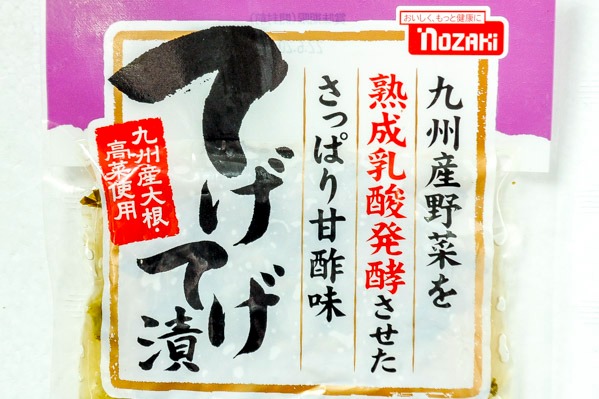 おいしく、もっと健康に
nozaki
九州産野菜を
熟成乳酸発酵させた
さっぱり甘酢味
てげてげ漬
九州産大根・
高菜使用